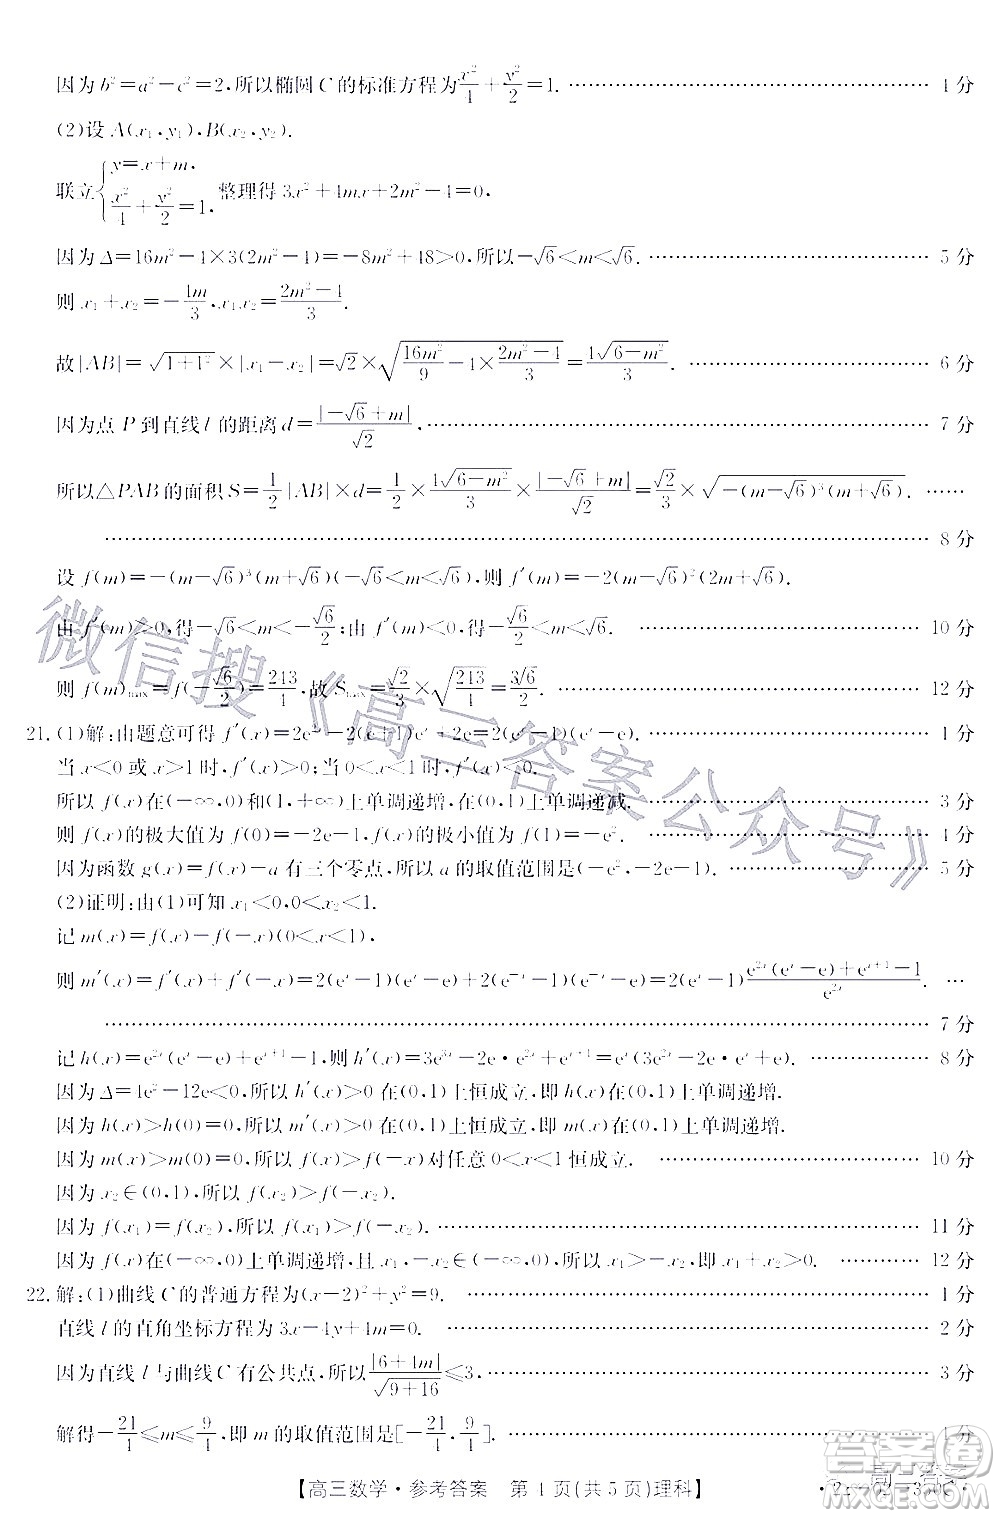 因为b²=a²-c²=2,所以椭圆C的标准方程为x²/4+y²/2=1. …… 4分
(2)设A(x₁,y₁),B(x₂,y₂).
联立{y=x+m, x²/4+y²/2=1, 整理得3x²+4mx+2m²-4=0,
因为Δ=16m²-4×3(2m²-4)=-8m²+48>0,所以-√6<m<√6. …… 5分
则x₁+x₂=-4m/3,x₁x₂=(2m²-4)/3.
故|AB|=√(1+1²)×|x₁-x₂|=√2×√(16m²/9-4×(2m²-4)/3)=4√(6-m²)/3. …… 6分
因为点P到直线l的距离d=|-√6+m|/√2, …… 7分
所以△PAB的面积S=1/2|AB|×d=1/2×4√(6-m²)/3×|-√6+m|/√2=√2/3×√(-(m-√6)³(m+√6)). ……
…… 8分
设f(m)=-(m-√6)³(m+√6)(-√6<m<√6),则f′(m)=-2(m-√6)²(2m+√6).
由f′(m)>0,得-√6<m<-√6/2;由f′(m)<0,得-√6/2<m<√6. …… 10分
则f(m)max=f(-√6/2)=243/4,故Smax=√2/3×√(243/4)=3√6/2. …… 12分
21.(1)解:由题意可得f′(x)=2e²ˣ-2(e+1)eˣ+2e=2(eˣ-1)(eˣ-e). …… 1分
当x<0或x>1时,f′(x)>0;当0<x<1时,f′(x)<0.
所以f(x)在(-∞,0)和(1,+∞)上单调递增,在(0,1)上单调递减. …… 3分
则f(x)的极大值为f(0)=-2e-1,f(x)的极小值为f(1)=-e². …… 4分
因为函数g(x)=f(x)-a有三个零点,所以a的取值范围是(-e²,-2e-1). …… 5分
(2)证明:由(1)可知x₁<0,0<x₂<1.
记m(x)=f(x)-f(-x)(0<x<1),
则m′(x)=f′(x)+f′(-x)=2(eˣ-1)(eˣ-e)+2(e⁻ˣ-1)(e⁻ˣ-e)=2(eˣ-1)(e²ˣ(eˣ-e)+eˣ⁺¹-1)/e²ˣ. …
…… 7分
记h(x)=e²ˣ(eˣ-e)+eˣ⁺¹-1,则h′(x)=3e³ˣ-2e·e²ˣ+eˣ⁺¹=eˣ(3e²ˣ-2e·eˣ+e). …… 8分
因为Δ=4e²-12e<0,所以h′(x)>0在(0,1)上恒成立,即h(x)在(0,1)上单调递增.
因为h(x)>h(0)=0,所以m′(x)>0在(0,1)上恒成立,即m(x)在(0,1)上单调递增.
因为m(x)>m(0)=0,所以f(x)>f(-x)对任意0<x<1恒成立. …… 10分
因为x₂∈(0,1),所以f(x₂)>f(-x₂).
因为f(x₁)=f(x₂),所以f(x₁)>f(-x₂). …… 11分
因为f(x)在(-∞,0)上单调递增,且x₁,-x₂∈(-∞,0),所以x₁>-x₂,即x₁+x₂>0. …… 12分
22.解:(1)曲线C的普通方程为(x-2)²+y²=9. …… 1分
直线l的直角坐标方程为3x-4y+4m=0. …… 2分
因为直线l与曲线C有公共点,所以|6+4m|/√(9+16)≤3, …… 3分
解得-21/4≤m≤9/4,即m的取值范围是[-21/4,9/4]. …… 4分
【高三数学·参考答案 第4页(共5页)理科】
微信搜《高三答案公众号》
答案圈